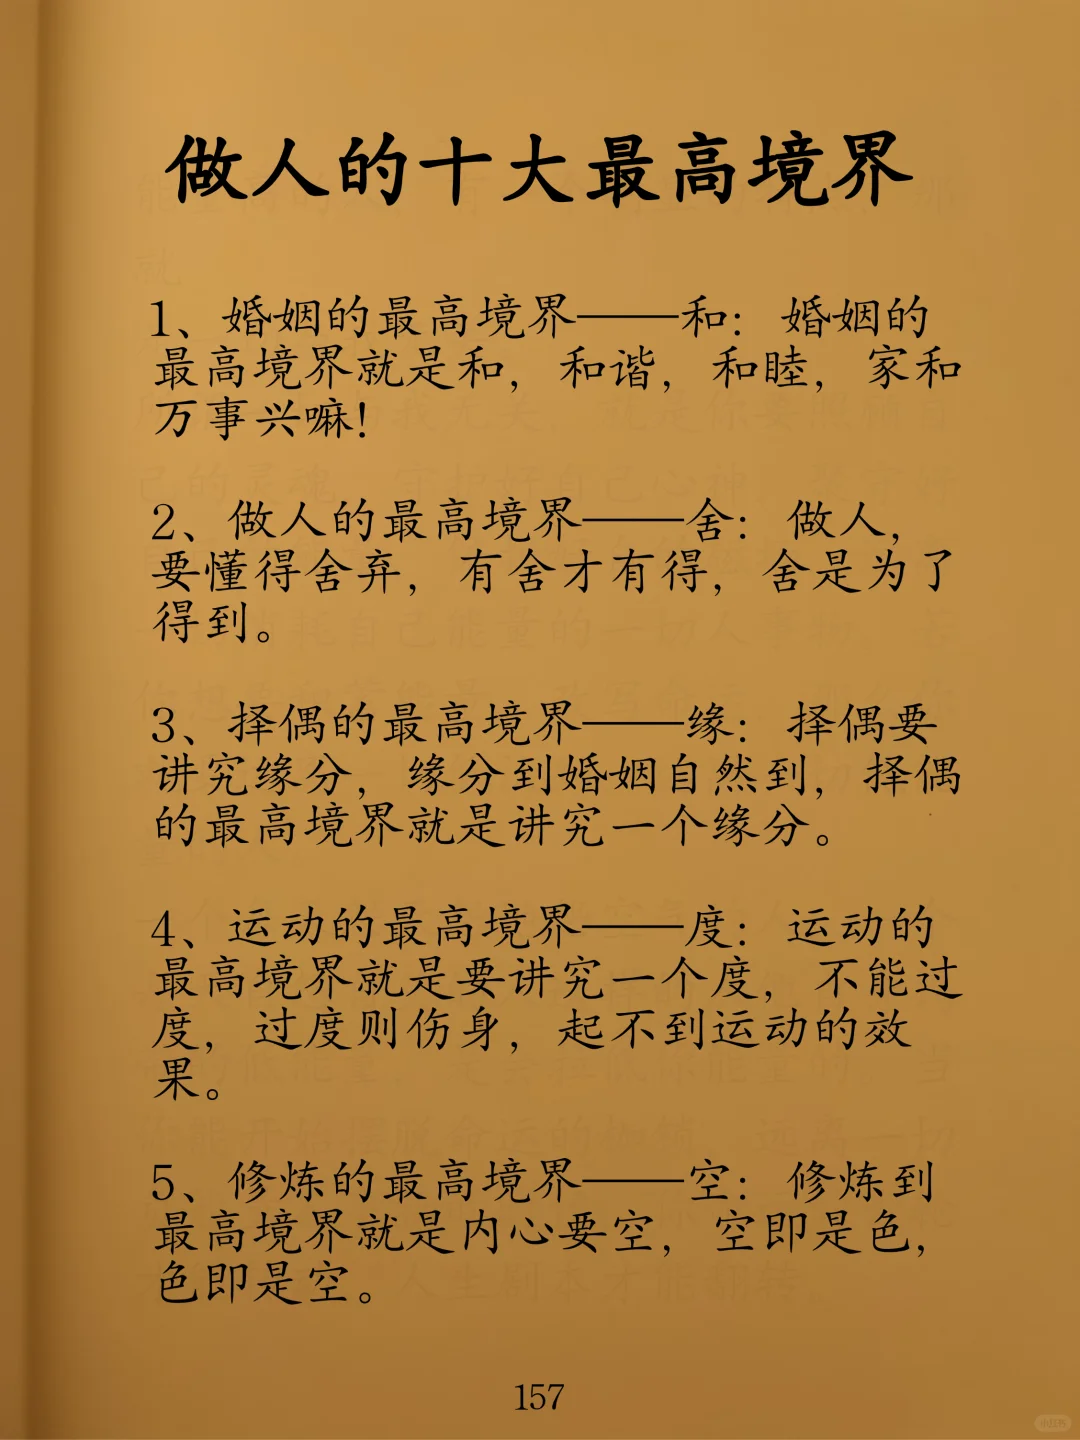 做人的十大最高境界
1、婚姻的最高境界——和：婚姻的
最高境界就是和，和谐，和睦，家和
万事兴嘛！
2、做人的最高境界——舍：做人，
要懂得舍弃，有舍才有得，舍是为了
得到。
3、择偶的最高境界——缘：择偶要
讲究缘分，缘分到婚姻自然到，择偶
的最高境界就是讲究一个缘分。
4、运动的最高境界——度：运动的
最高境界就是要讲究一个度，不能过
度，过度则伤身，起不到运动的效
果。
5、修炼的最高境界——空：修炼到
最高境界就是内心要空，空即是色，
色即是空。
157
小红书